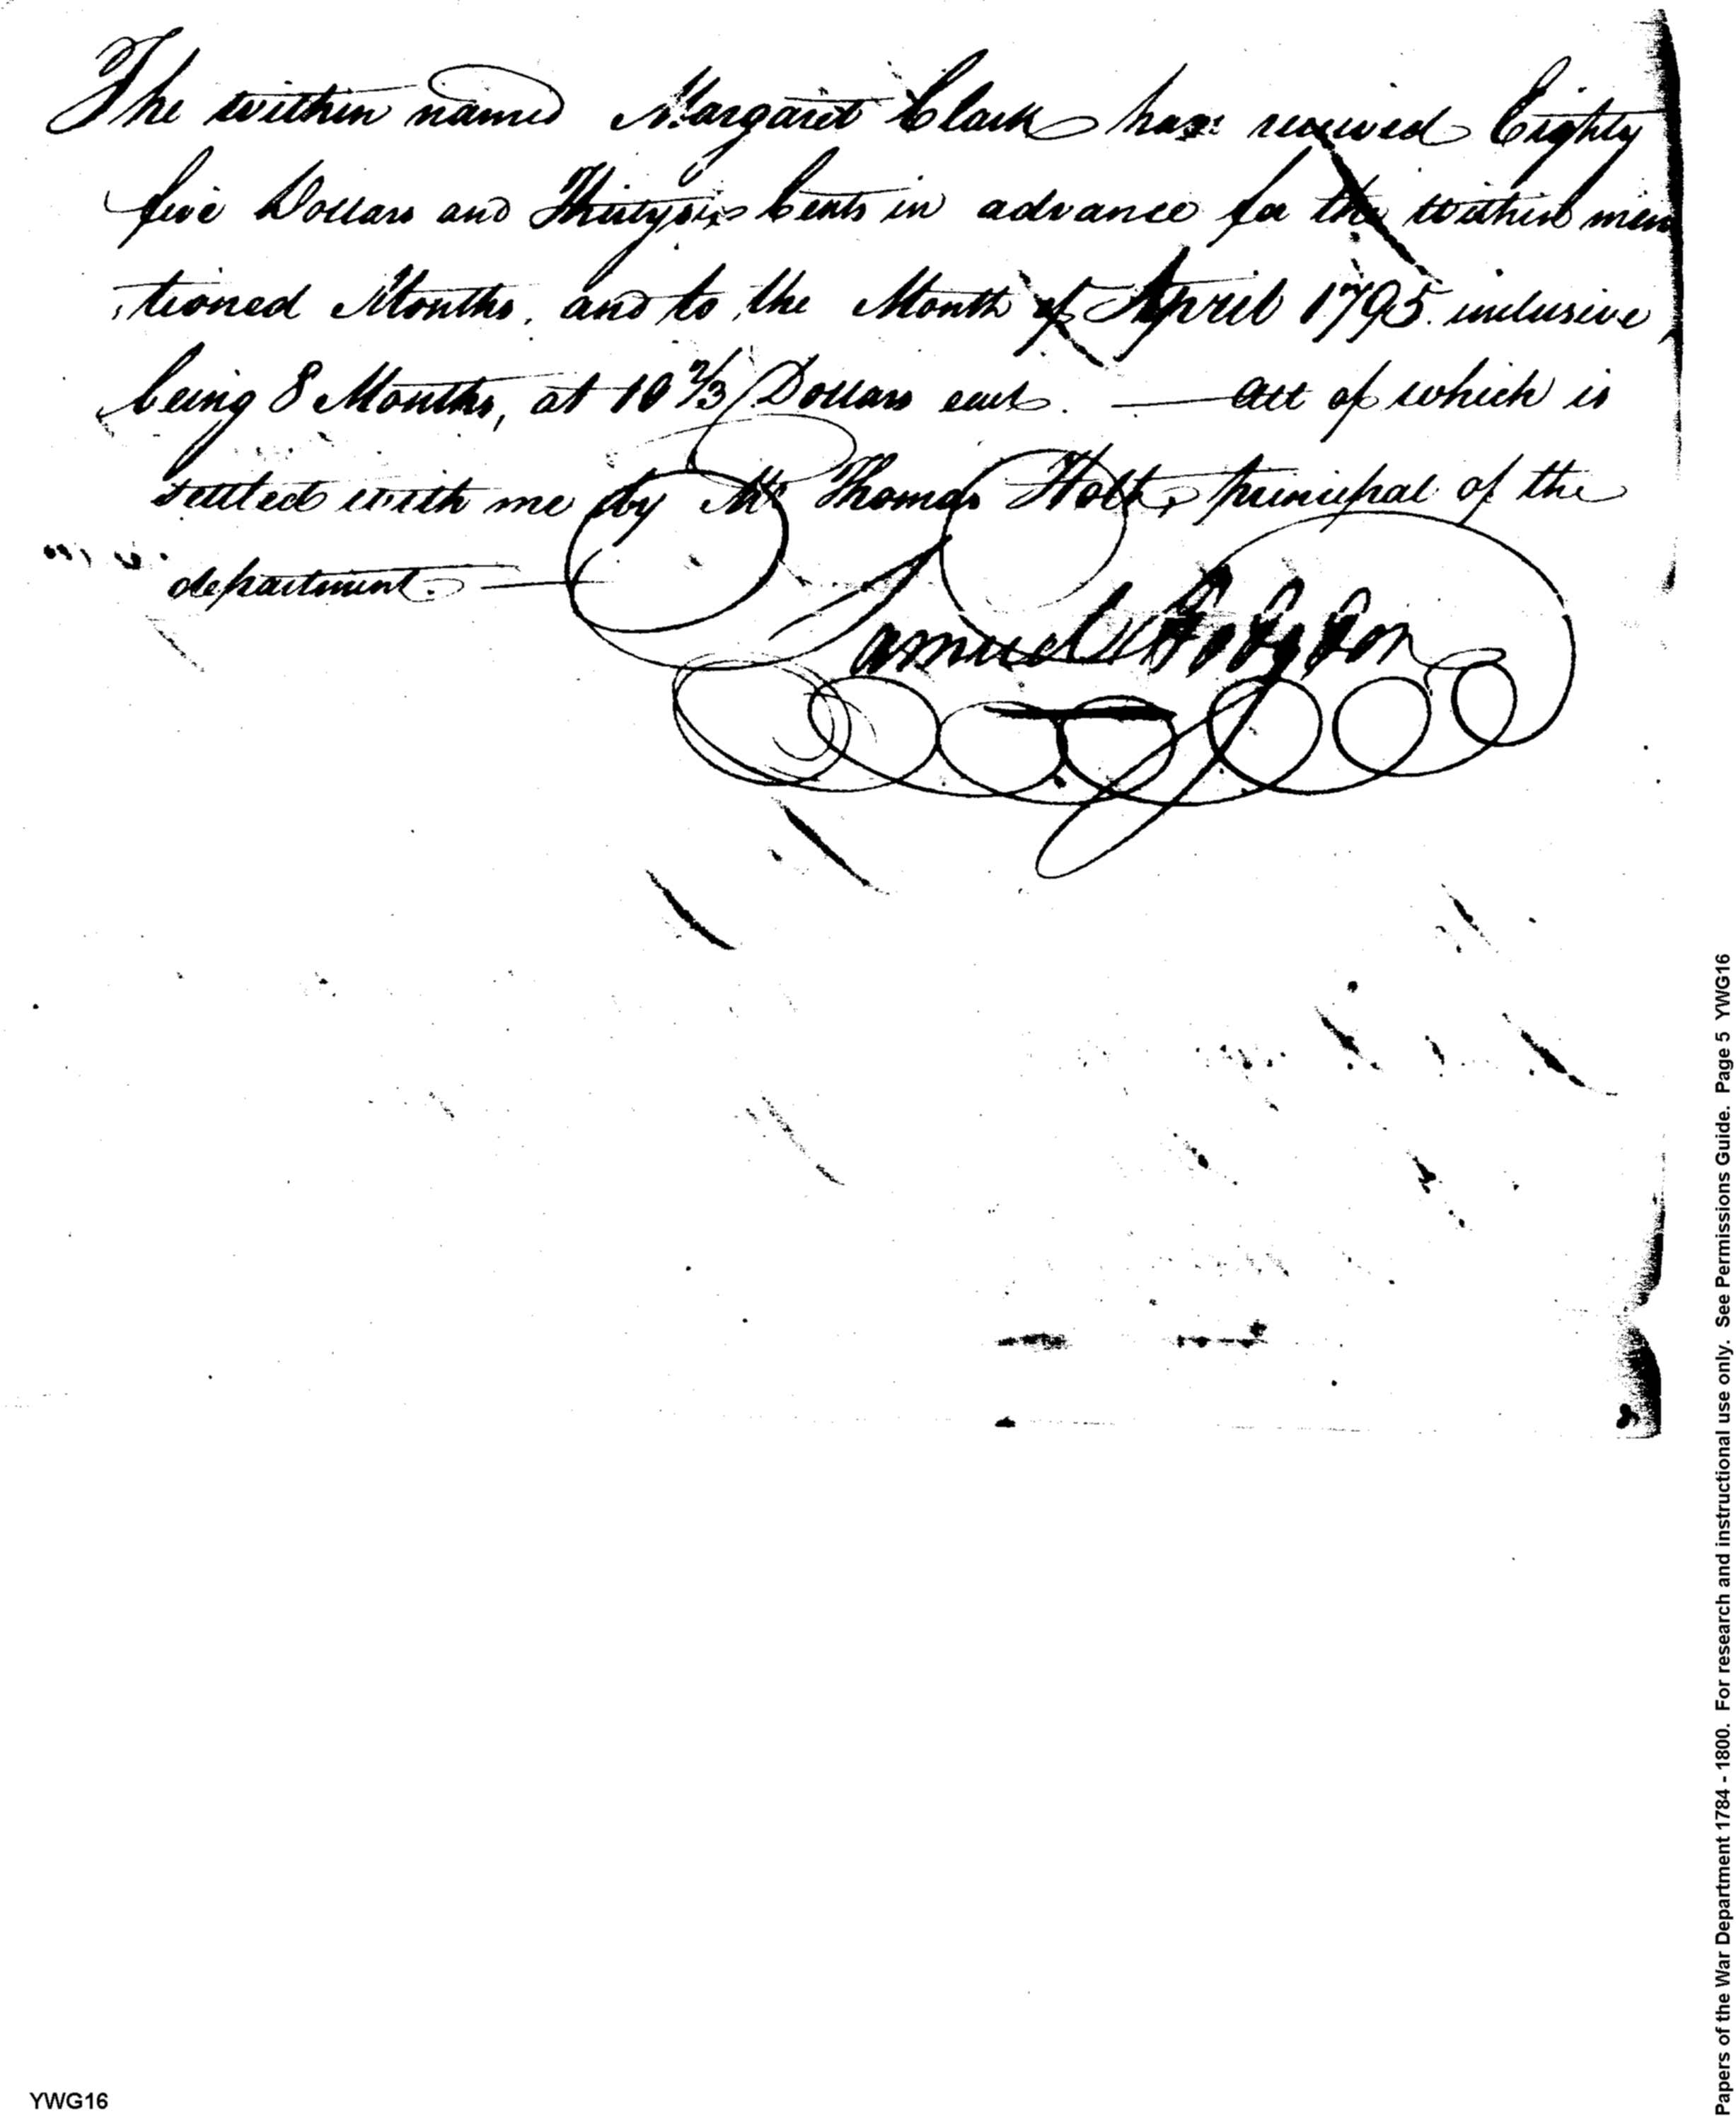 The within named Margaret Clark has received Eighty
five Dollars and Thirtysix Cents in advance for the within men
tioned Months, and to the Month of April 1795. inclusive
being 8 Months, at 10 2/3 Dollars each. — All of which is
settled with me by Mr Thomas Holt, principal of the
department. —
Samuel Hodgdon
Papers of the War Department 1784 - 1800. For research and instructional use only. See Permissions Guide. Page 5 YWG16
YWG16